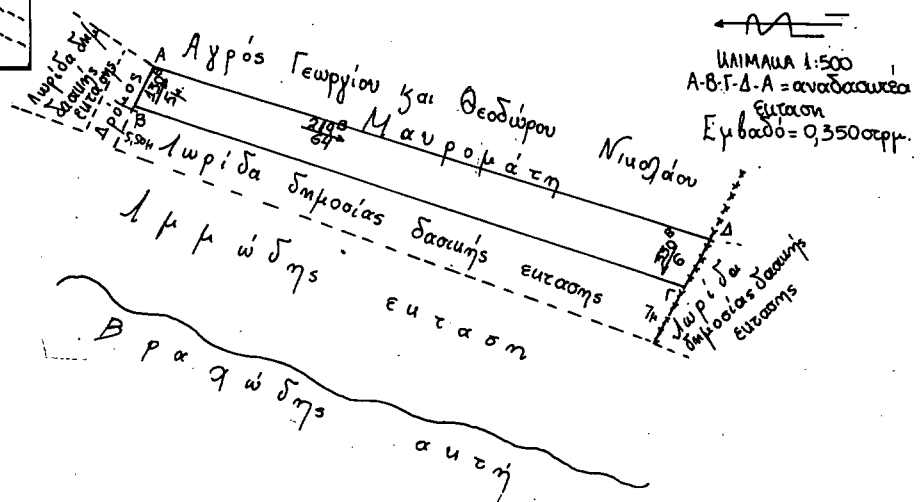 ΚΛΙΜΑΚΑ 1:500
Α-Β-Γ-Δ-Α = αναδασωτέα
έκταση
Εμβαδό = 0,350 στρμ.
Λωρίδα δημ
δασικής
έκτασης
Δρόμος
Α
Αγρός Γεωργίου και Θεοδώρου Νικολάου
Μαυρομάτη
130
5μ.
Β
5,50μ
219
64
Λωρίδα δημοσίας δασικής εκτασης
Αμμώδης εκταση
Βραχώδης ακτή
Δ
6
Γ
7μ
Λωρίδα
δημοσίας δασικής
έκτασης